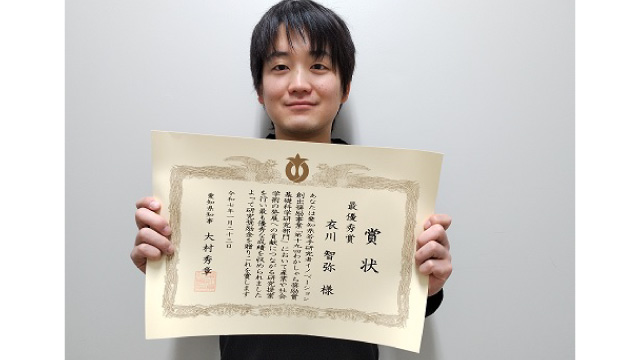 賞状
最優秀賞
衣川 智弥 様
あなたは愛知県若手研究者イノベーション
創出奨励事業「第十九回わかしゃち奨励賞
基礎科学研究部門」において産業や社会
学術の発展への貢献につながる研究提案
を行い最も優秀な成績を収められました
よって研究奨励金を贈りこれを賞します
令和七年一月二十三日
愛知県知事 大村秀章